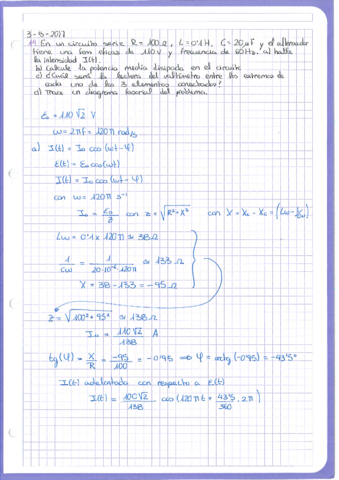 3-5-2017
1º En un circuito serie R = 100Ω, L = 0'1H, C = 20μF y el alternador
tiene una fem eficaz de 110V y frecuencia de 60Hz. a) halla
la intensidad I(t)
b) Calcule la potencia media disipada en el circuito
c) ¿Cuál será la lectura del voltímetro entre los extremos de
cada uno de los 3 elementos conectados?
d) Trace un diagrama fasorial del problema.
ε₀ = 110√2 V
ω = 2πf = 120π rad/s
a) I(t) = I₀ cos (ωt - φ)
ε(t) = ε₀ cos(ωt)
I(t) = I₀ cos (ωt - φ)
con ω = 120π s⁻¹
I₀ = ε₀/z con z = √R² - X² con X = X_L - X_C = (Lω - 1/Cω)
Lω = 0'1 x 120π ≈ 38Ω
1/Cω = 1/20·10⁻⁶·120π ≈ 133Ω
X = 38 - 133 = -95Ω
z = √100² + 95² ≈ 138Ω
I₀ = 110√2/138 A
tg(φ) = X/R = -95/100 = -0'95 ⟹ φ = arctg(-0'95) = -43'5°
I(t) adelantada con respecto a ε(t)
I(t) = 100√2/138 cos (120πt + 43'5/360 · 2π)